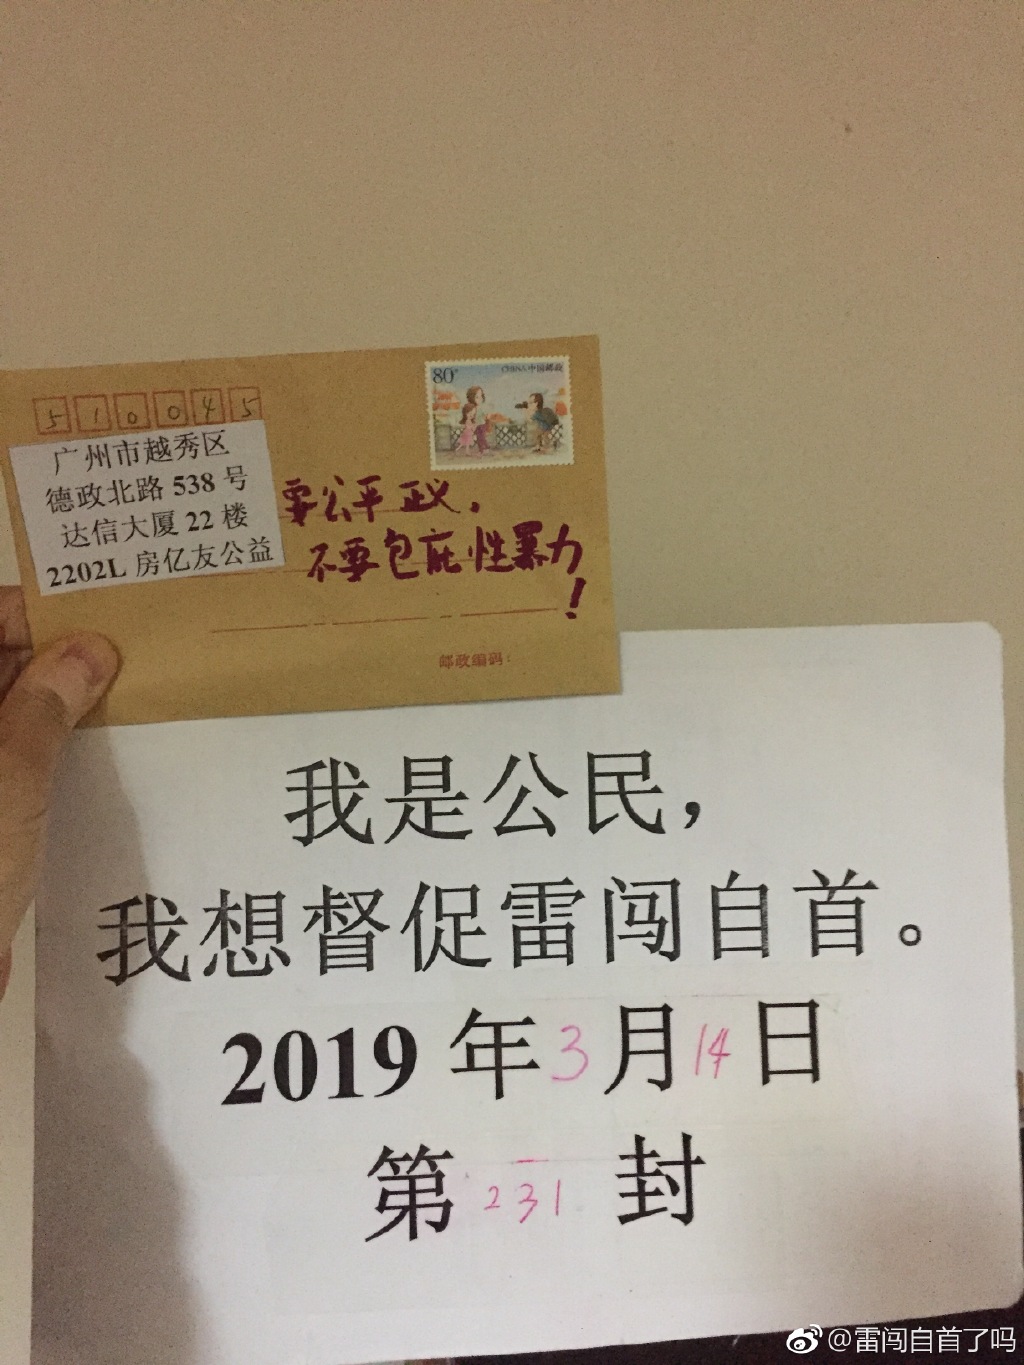 510045
80分
CHINA 中国邮政
广州市越秀区
德政北路 538 号
达信大厦 22 楼
2202L 房亿友公益
要公平正义，
不要包庇性暴力！
邮政编码：
我是公民，
我想督促雷闯自首。
2019 年 3 月 14 日
第 231 封
@雷闯自首了吗